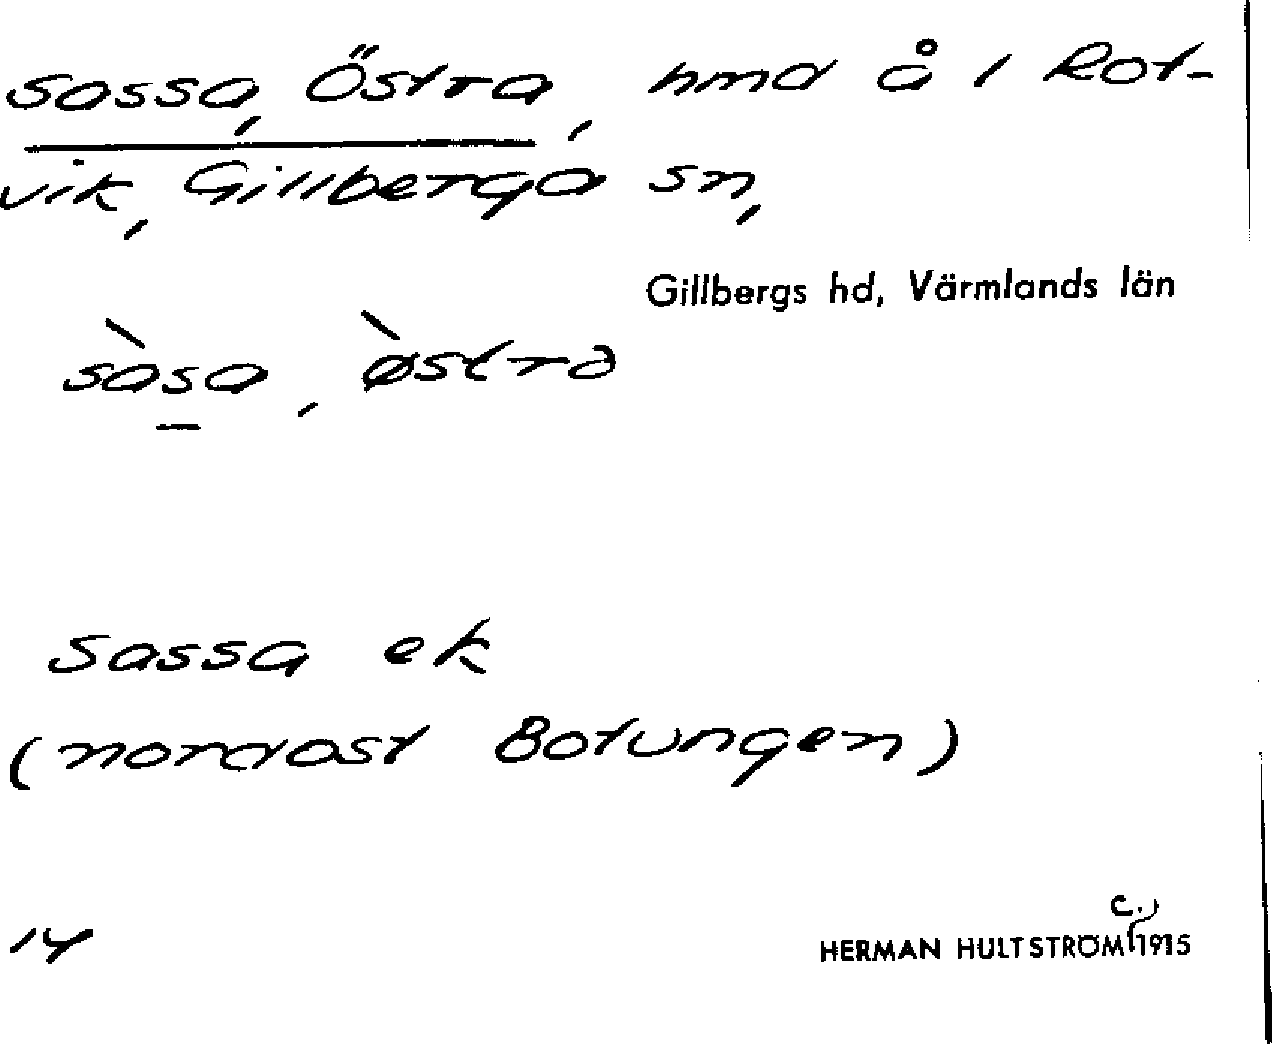 Sassa, Östra, hmd å i Rot-
vik, Gillberga sn,
Gillbergs hd, Värmlands län
sàsa, ø̀stra
Sassa ek
(nordost Botungen)
c.,
14 HERMAN HULTSTRÖM 1915